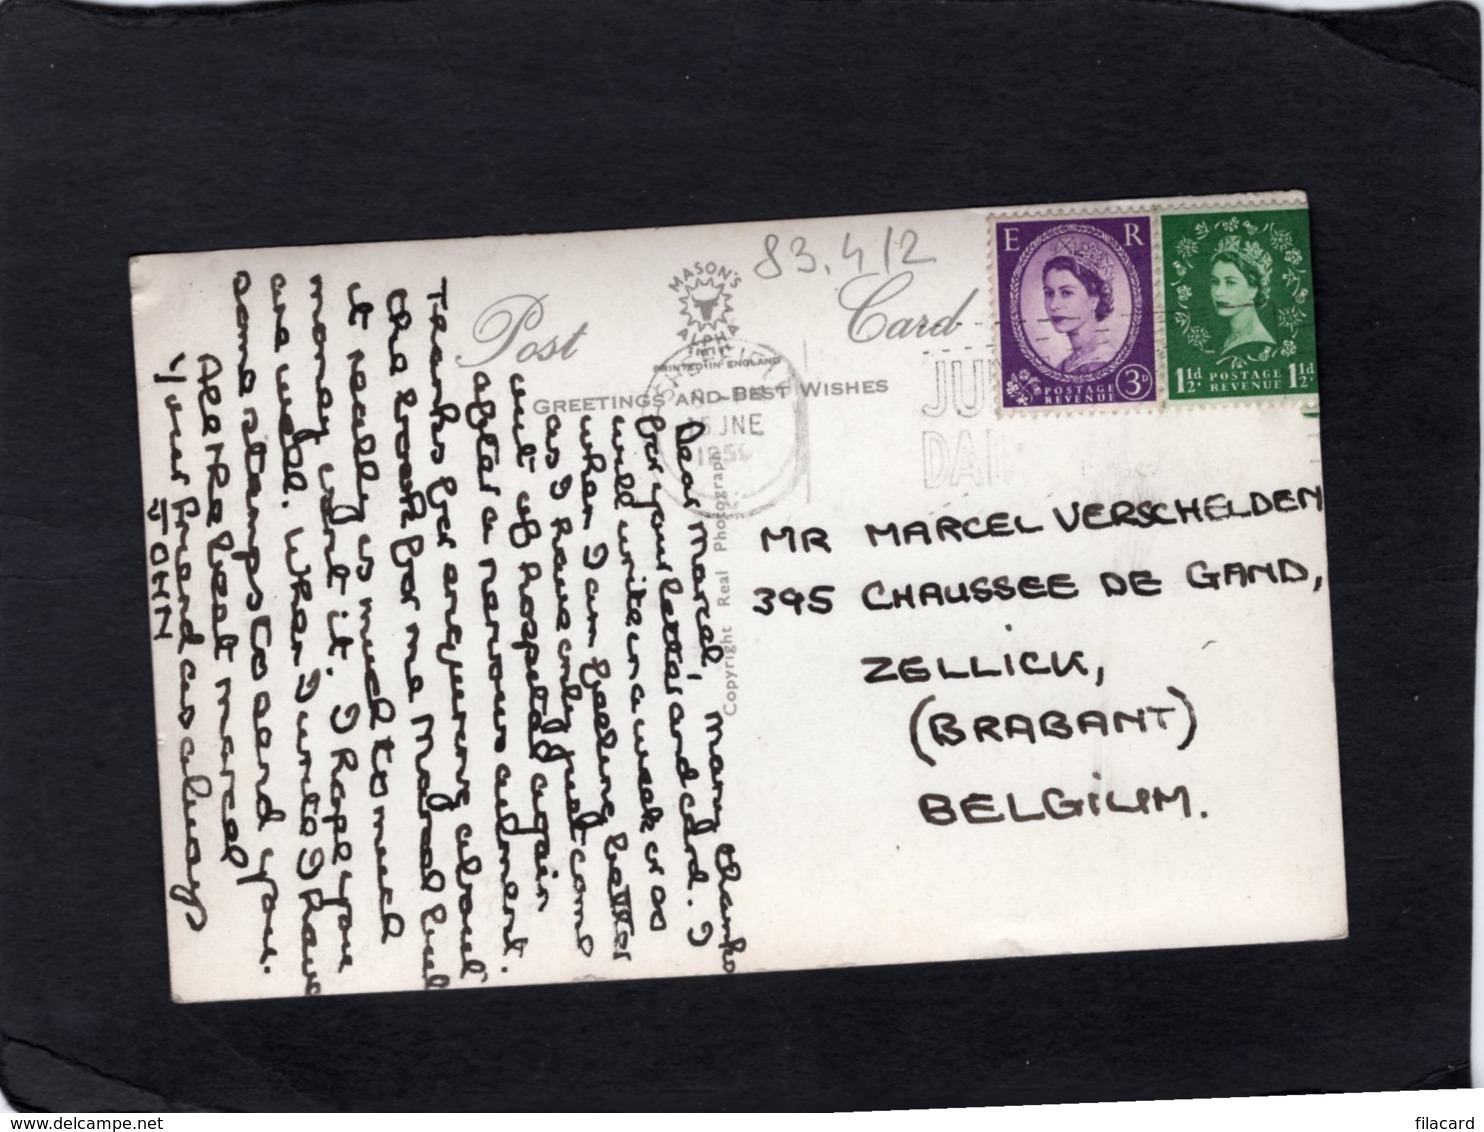 83.412
Post Card
MASON'S
ALPHA
SERIES
PRINTED IN ENGLAND
GREETINGS AND BEST WISHES
15 JNE
Copyright Real Photograph
E R
POSTAGE REVENUE 3D
1½d POSTAGE REVENUE 1½d
Dear Marcel, Many thanks
for your letter and card. I
will write in a week or so
when I am feeling better
as I have only just come
out of hospital again
after a nervous ailment.
Thanks for enquiring about
the book for me Marcel but
it really is much to much
money isn't it. I hope you
are well. When I write I have
some stamps to send you.
All the best Marcel
Your friend as always
JOHN
MR MARCEL VERSCHELDEN
395 CHAUSSEE DE GAND,
ZELLICK,
(BRABANT)
BELGIUM.
filacard